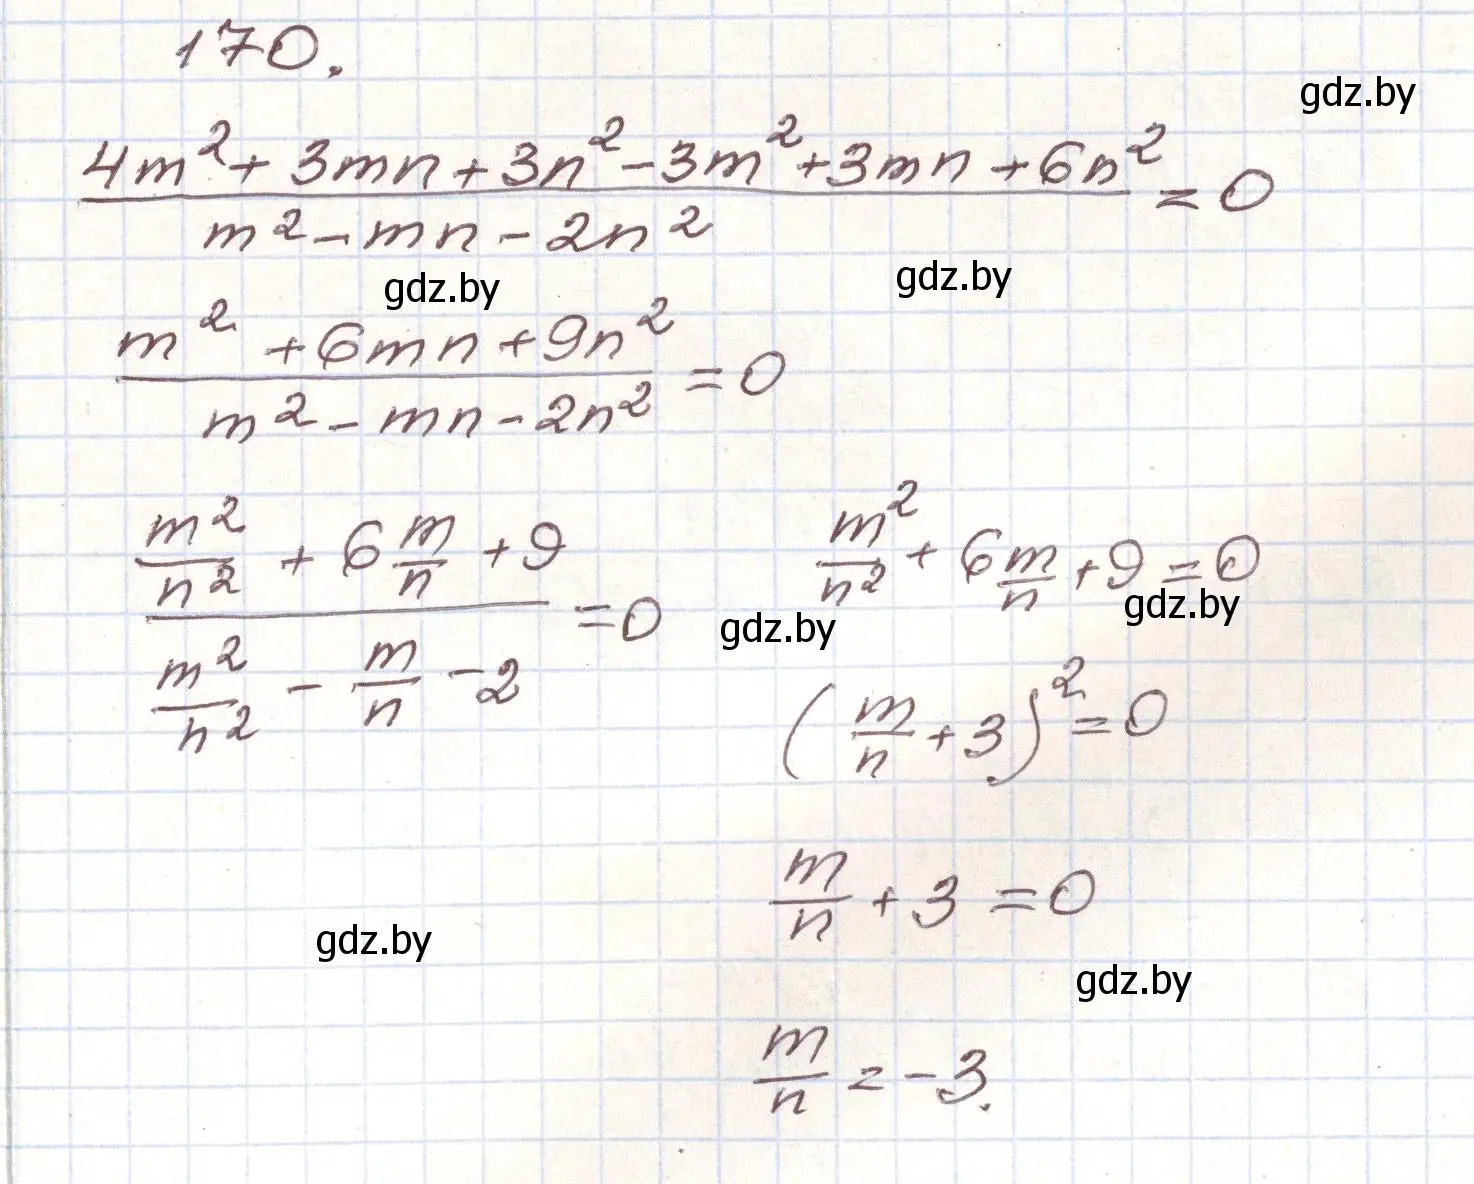 170.
gdz.by
\frac{4m^2 + 3mn + 3n^2 - 3m^2 + 3mn + 6n^2}{m^2 - mn - 2n^2} = 0
gdz.by gdz.by
\frac{m^2 + 6mn + 9n^2}{m^2 - mn - 2n^2} = 0
\frac{\frac{m^2}{n^2} + 6\frac{m}{n} + 9}{\frac{m^2}{n^2} - \frac{m}{n} - 2} = 0
\frac{m^2}{n^2} + 6\frac{m}{n} + 9 = 0
gdz.by gdz.by
(\frac{m}{n} + 3)^2 = 0
\frac{m}{n} + 3 = 0
gdz.by
gdz.by
\frac{m}{n} = -3.